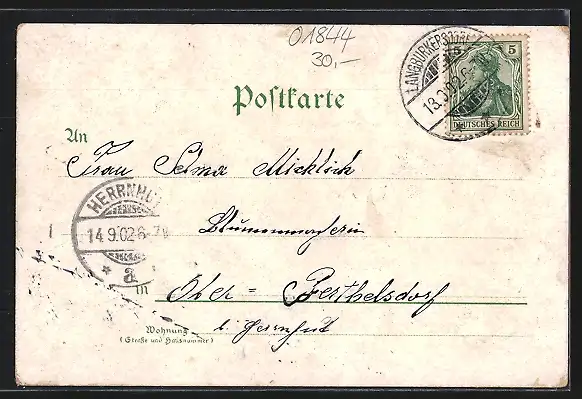 01844
30,-
LANGBURKERSDORF
13.9.02 6-
5 5
DEUTSCHES REICH
Postkarte
An
Frau Selma Micklich
HERRNHUT
14.9.02 6-7N
* a
Blumenmacherin
in
Ober = Berthelsdorf
b. Herrnhut
Wohnung
(Straße und Hausnummer)